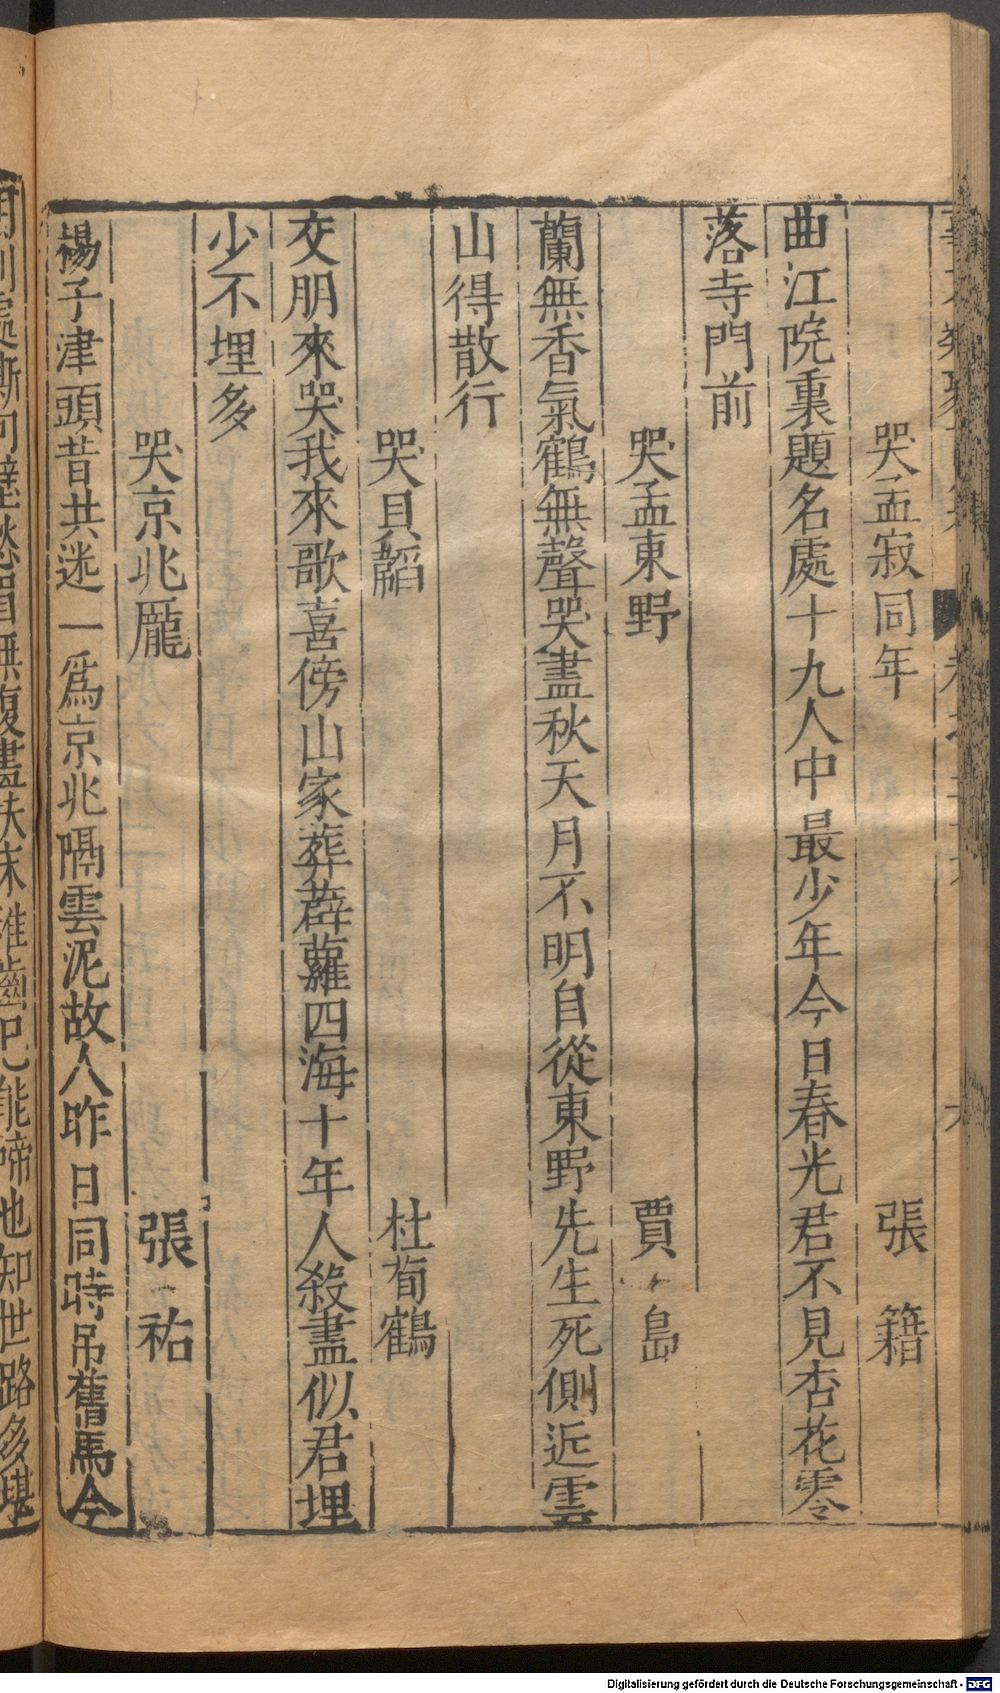 哭孟寂同年　張籍
曲江院裏題名處十九人中最少年今日春光君不見杏花零
落寺門前
哭孟東野　賈島
蘭無香氣鶴無聲哭盡秋天月不明自從東野先生死側近雲
山得散行
哭貝韜　杜荀鶴
交朋來哭我來歌喜傍山家葬薜蘿四海十年人殺盡似君埋
少不埋多
哭京兆龐　張祐
楊子津頭昔共迷一爲京兆隔雲泥故人昨日同時吊舊馬今
愁眉無復畫扶床稚齒已能啼也知世路多堪
Digitalisierung gefördert durch die Deutsche Forschungsgemeinschaft - DFG